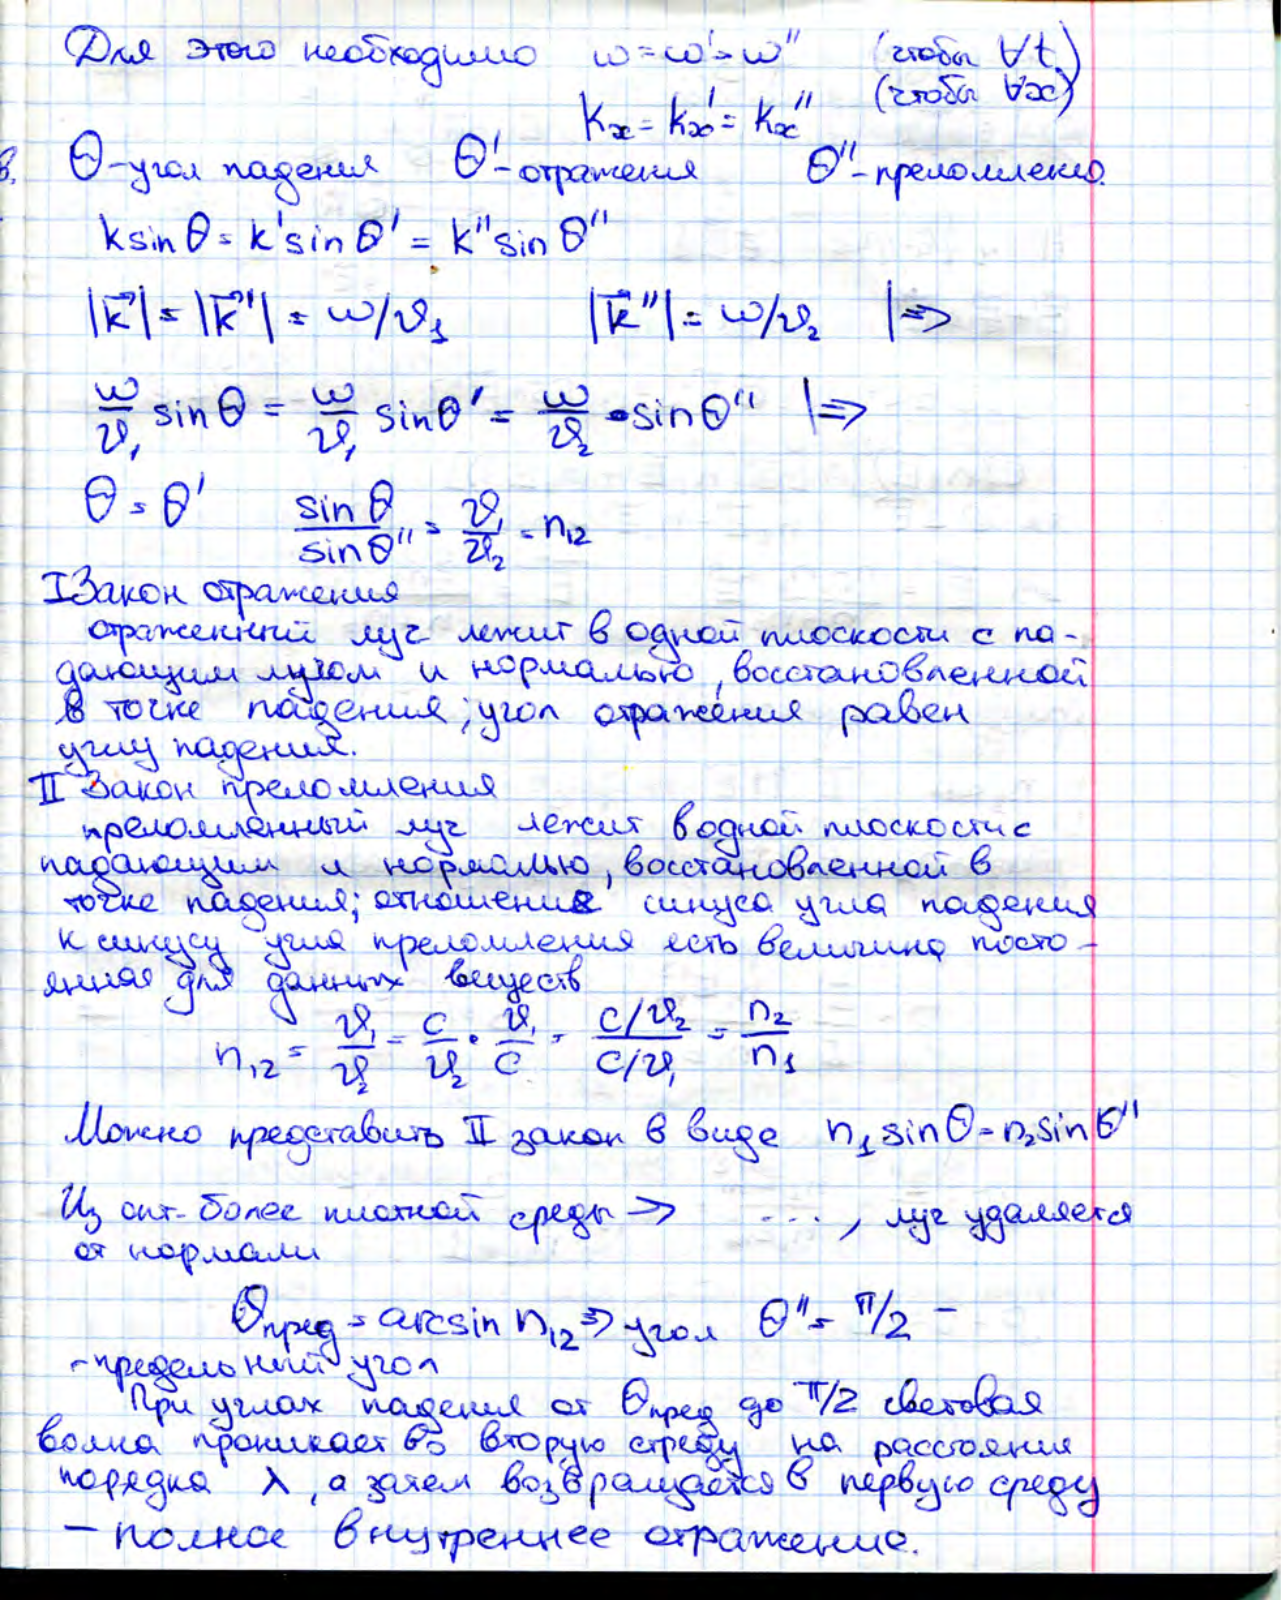 Для этого необходимо ω = ω' = ω'' (чтобы ∀t)
(чтобы ∀x)
kx = kx' = kx''
в.
θ - угол падения θ' - отражения θ'' - преломлено.
k sin θ = k' sin θ' = k'' sin θ''
|k⃗| = |k⃗'| = ω/ϑ1 |k⃗''| = ω/ϑ2 |⇒
ω/ϑ1 sin θ = ω/ϑ1 sin θ' = ω/ϑ2 · sin θ'' |⇒
θ = θ' sin θ / sin θ'' = ϑ1/ϑ2 = n12
I Закон отражения
отраженный луч лежит в одной плоскости с па-
дающим лучом и нормалью, восстановленной
в точке падения; угол отражения равен
углу падения.
II Закон преломления
преломленный луч лежит в одной плоскости с
падающим и нормалью, восстановленной в
точке падения; отношение синуса угла падения
к синусу угла преломления есть величина посто-
янная для данных веществ
n12 = ϑ1/ϑ2 = c/ϑ2 · ϑ1/c = (c/ϑ2)/(c/ϑ1) = n2/n1
Можно представить II закон в виде n1 sin θ = n2 sin θ''
Из опт. более плотной среды → ..., луч удаляется
от нормали
θпред = arcsin n12 ⇒ угол θ'' = π/2 -
- предельный угол
При углах падения от θпред до π/2 световая
волна проникает во вторую среду на расстояния
порядка λ, а затем возвращается в первую среду
- полное внутреннее отражение.